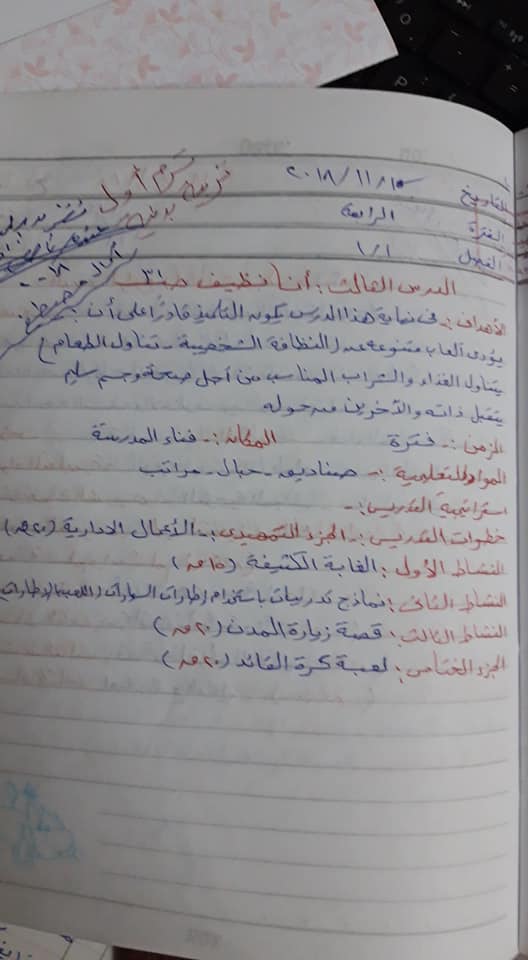 تربية بدنية
ترم أول
التاريخ ١٥/١١/٢٠١٨
الفترة الرابعة
الفصل ١/١
الدرس الثالث : أنا نظيف صـ ٣١
الأهداف :- فى نهاية هذا الدرس يكون التلميذ قادرًا على أن :-
يؤدى ألعاب متنوعة عن (النظافة الشخصية - تناول الطعام)
يتناول الغذاء والشراب المناسب من أجل صحة وجسم سليم
يتقبل ذاته والآخرين من حوله
الزمن :- فترة المكان :- فناء المدرسة
المواد التعليمية :- صناديق - حبال - مراتب
استراتيجية التدريس :-
خطوات التدريس :- الجزء التمهيدى :- الأعمال الادارية (٢٠ ق)
النشاط الأول : الغابة الكثيفة (١٥ ق)
النشاط الثانى : نماذج تدريبات باستخدام إطارات السيارات (اللعب بالإطارات)
النشاط الثالث : قصة زيارة المدن (٢٠ ق)
الجزء الختامى : لعبة كرة القائد (٢٠ ق)